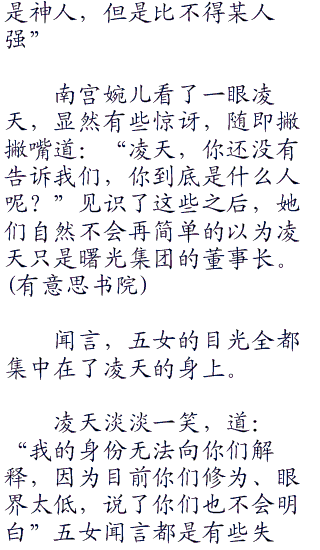 是神人，但是比不得某人
强”
南宫婉儿看了一眼凌
天，显然有些惊讶，随即撇
撇嘴道：“凌天，你还没有
告诉我们，你到底是什么人
呢？”见识了这些之后，她
们自然不会再简单的以为凌
天只是曙光集团的董事长。
(有意思书院)
闻言，五女的目光全都
集中在了凌天的身上。
凌天淡淡一笑，道：
“我的身份无法向你们解
释，因为目前你们修为、眼
界太低，说了你们也不会明
白”五女闻言都是有些失